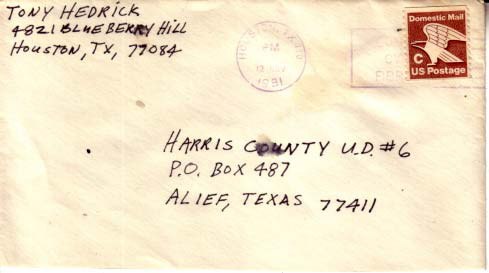 TONY HEDRICK
4821 BLUEBERRY HILL
HOUSTON, TX, 77084
PM
1981
Domestic Mail
C
US Postage
HARRIS COUNTY U.D. #6
P.O. BOX 487
ALIEF, TEXAS 77411